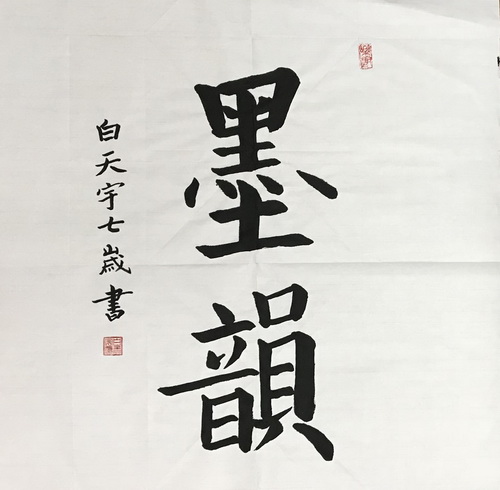 墨韻
白天宇七歳書